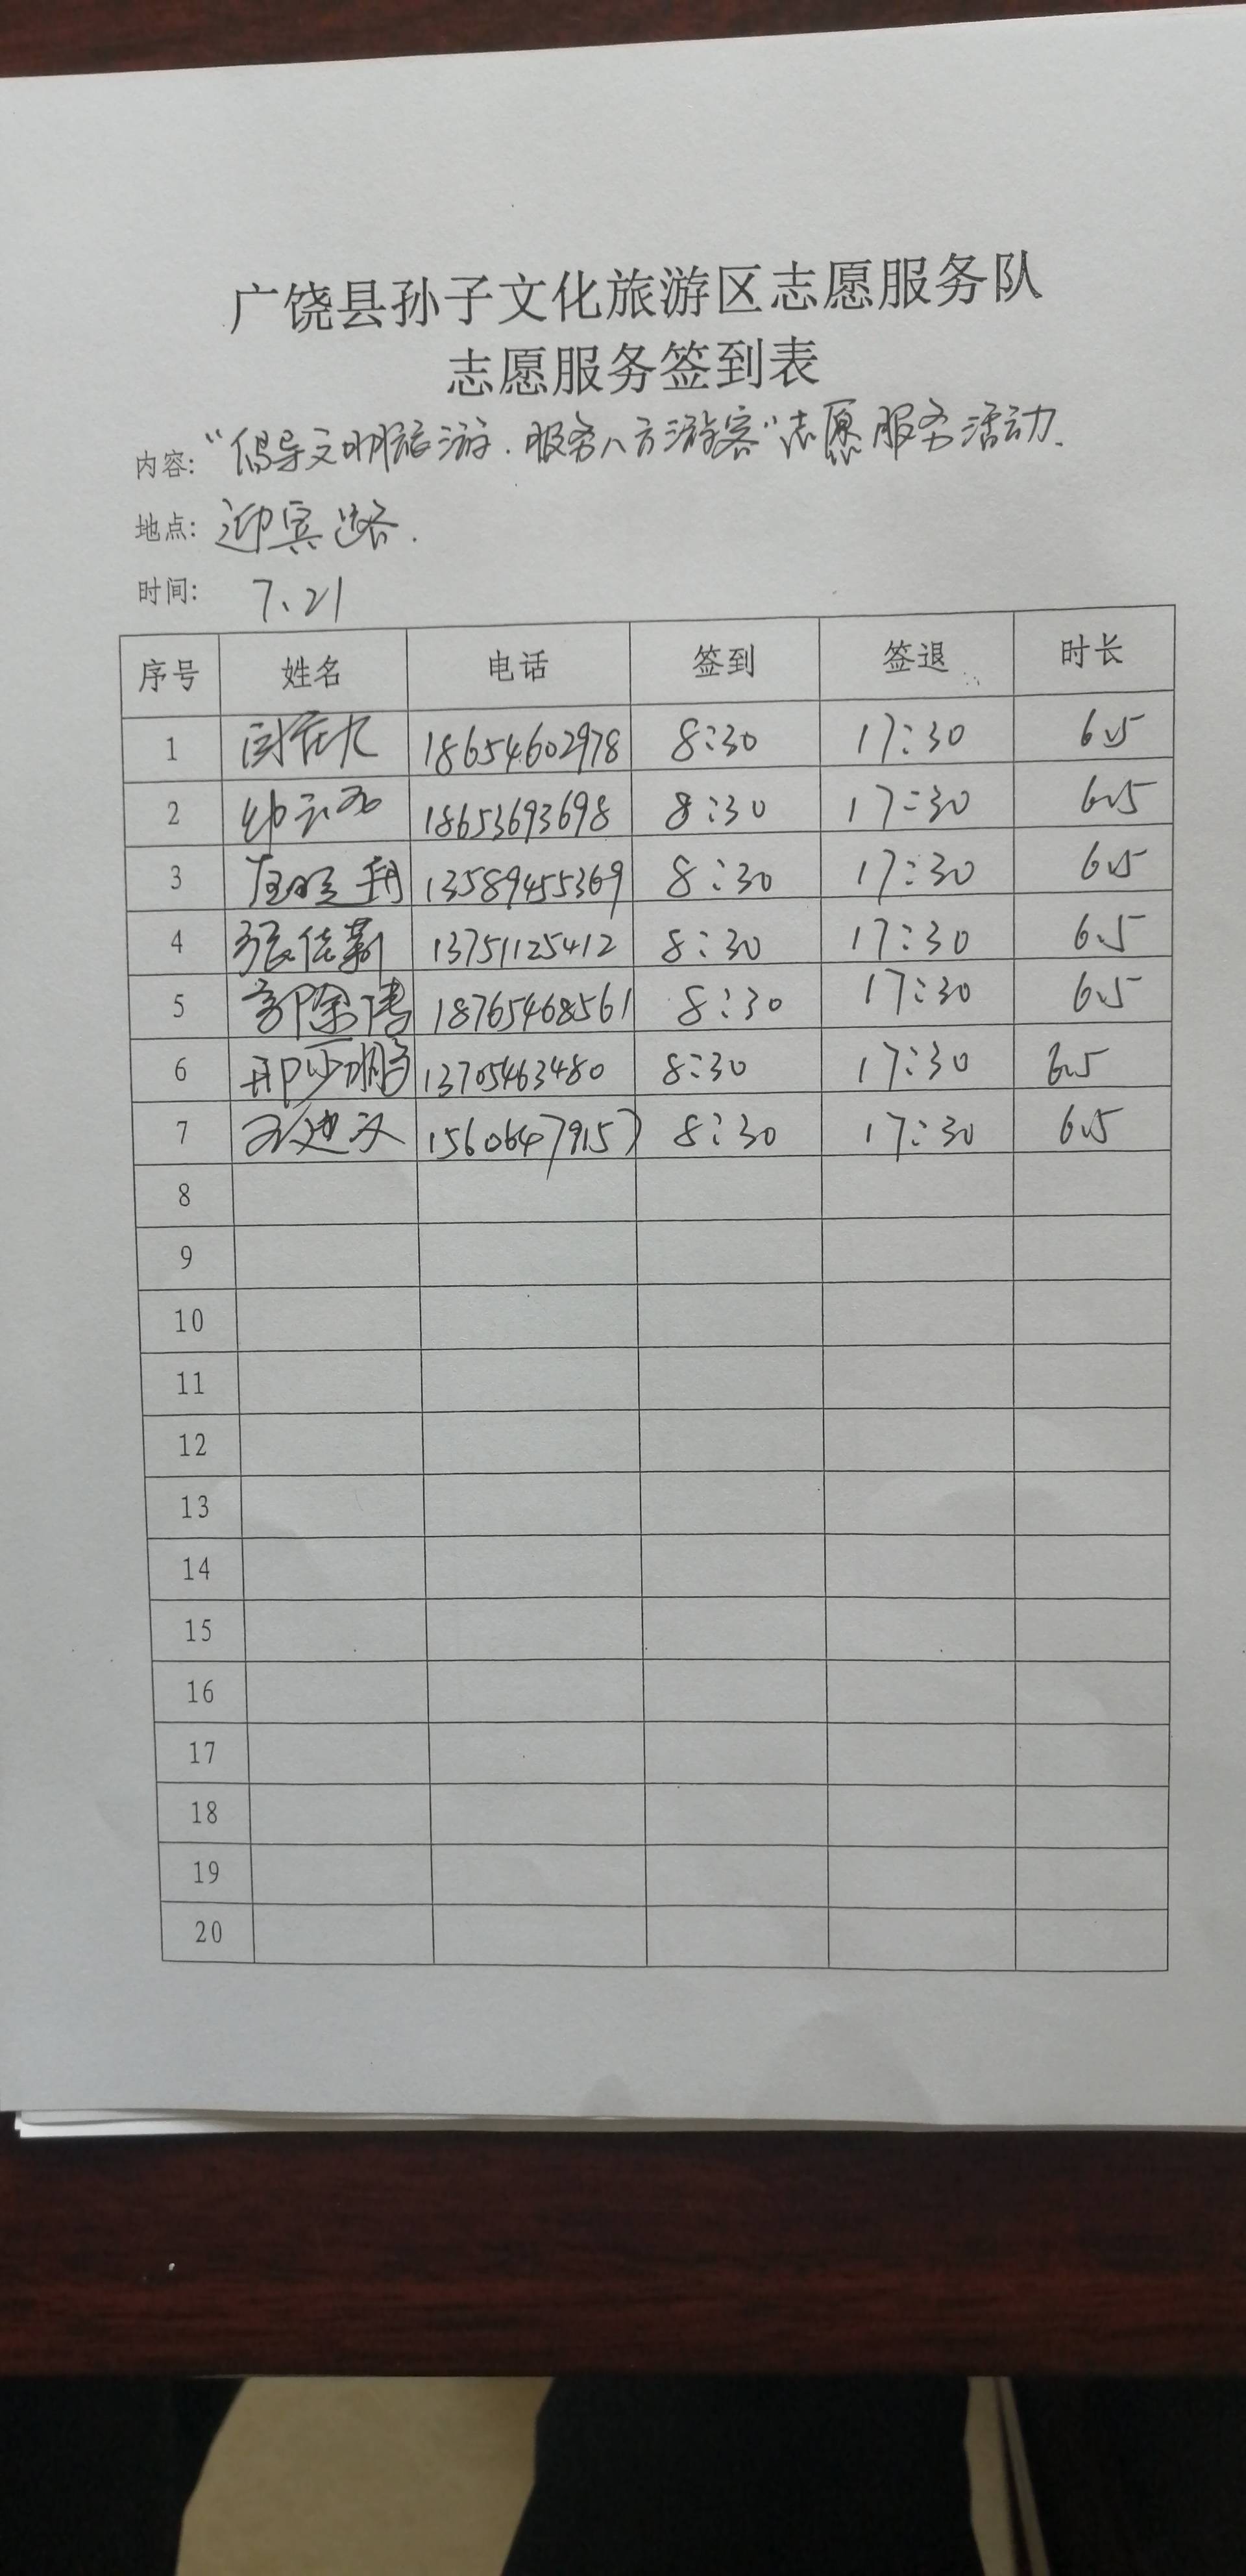 广饶县孙子文化旅游区志愿服务队
志愿服务签到表
内容: "倡导文明旅游.服务八方游客"志愿服务活动.
地点: 迎宾路.
时间: 7、21
序号 姓名 电话 签到 签退 时长
1 18654602978 8:30 17:30 6.5
2 18653693698 8:30 17:30 6.5
3 13589455369 8:30 17:30 6.5
4 张佳新 13751125412 8:30 17:30 6.5
5 18765468561 8:30 17:30 6.5
6 邢少鹏 13705463480 8:30 17:30 6.5
7 15606479157 8:30 17:30 6.5
8
9
10
11
12
13
14
15
16
17
18
19
20